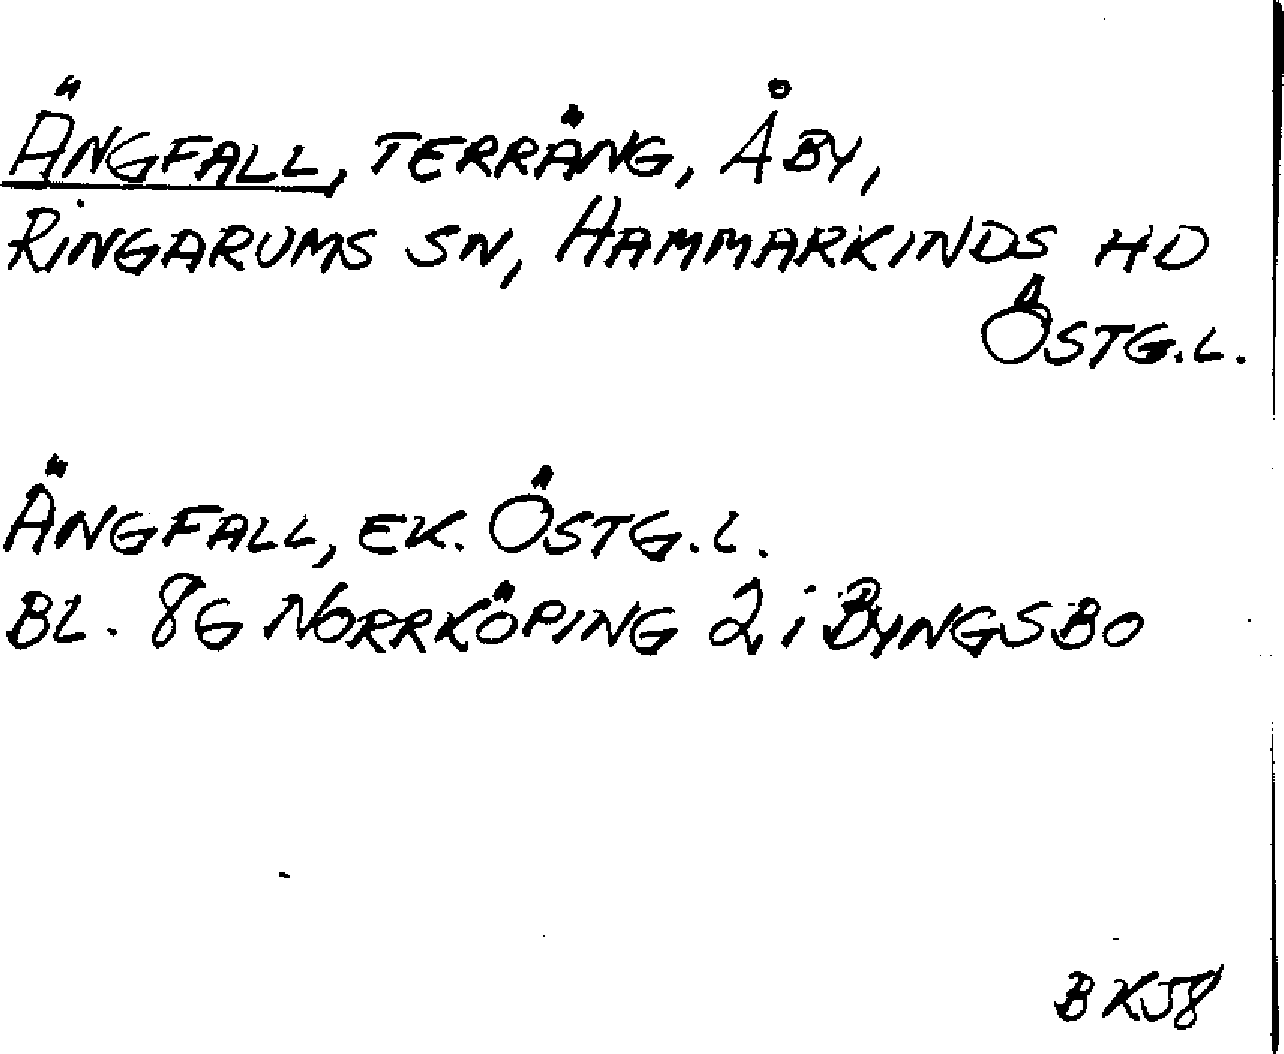 ÄNGFALL, TERRÄNG, ÅBY,
RINGARUMS SN, HAMMARKINDS HD
ÖSTG.L.
ÄNGFALL, EK. ÖSTG.L.
BL. 8G NORRKÖPING 2 i BYNGSBO
BK58